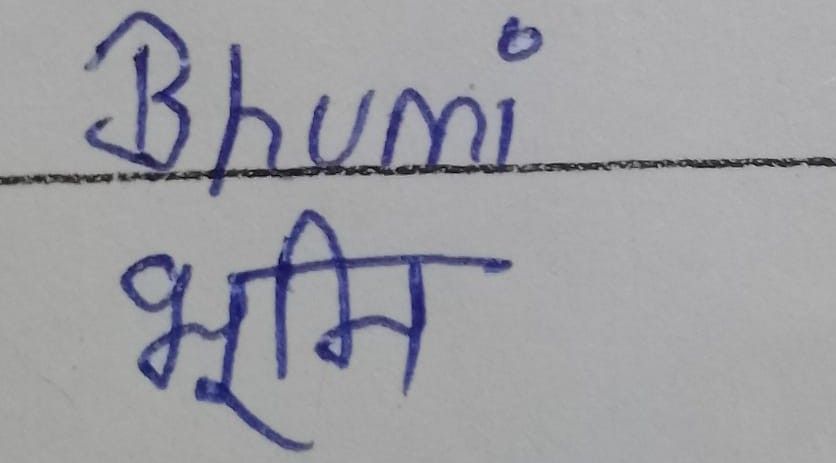 Bhumi
भूमि